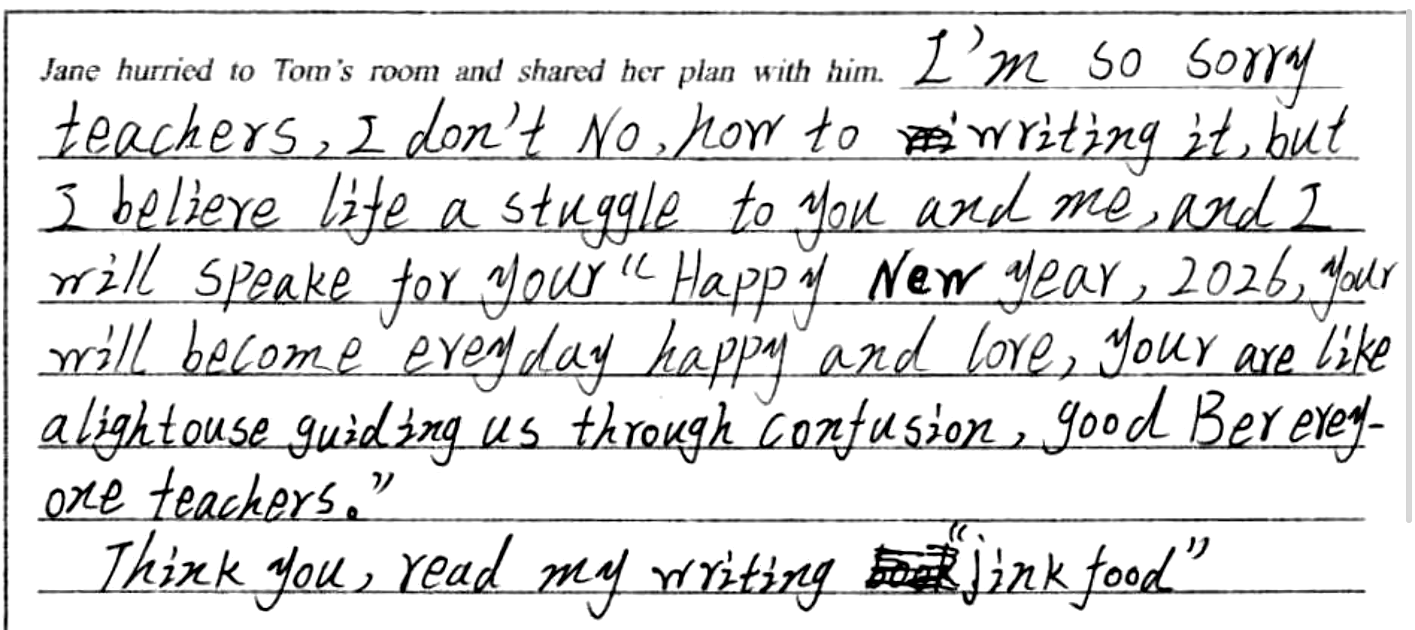 Jane hurried to Tom's room and shared her plan with him. I'm so sorry
teachers, I don't No, how to writing it, but
I believe life a stuggle to you and me, and I
will speake for your "Happy New year, 2026, your
will become everyday happy and love, your are like
alightouse guiding us through confusion, good Ber every-
one teachers."
Think you, read my writing "jink food"